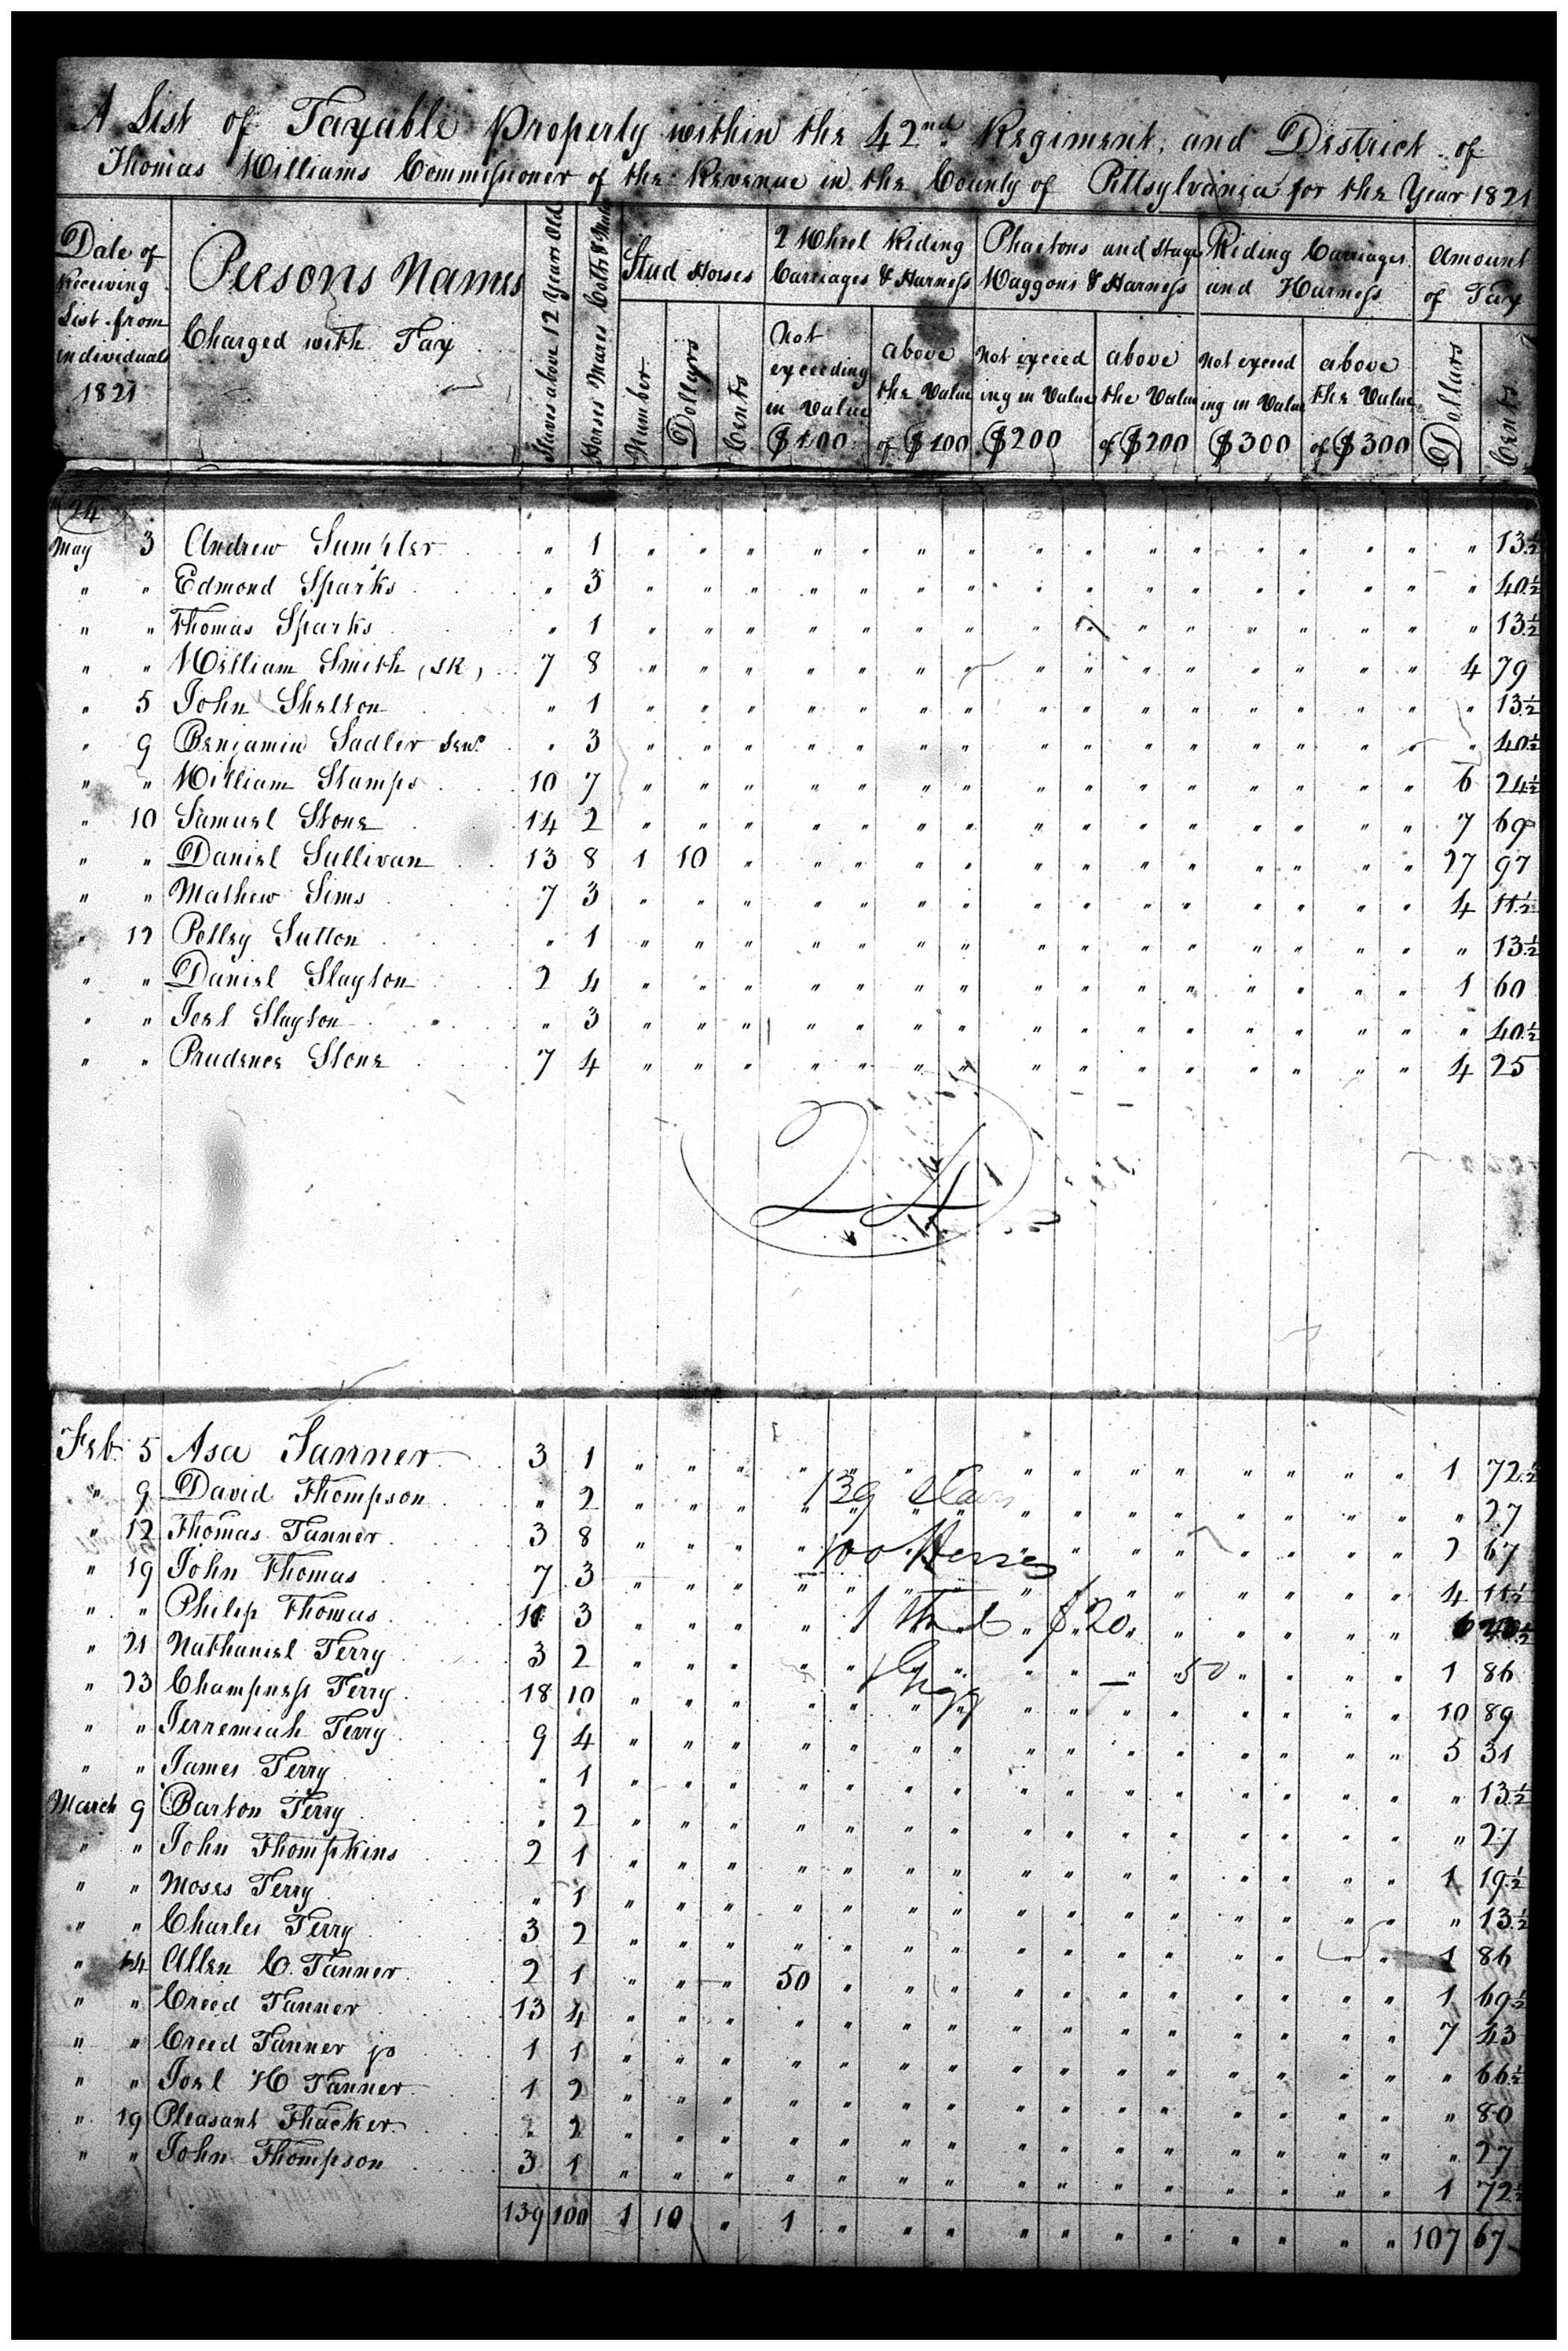 A List of Taxable Property within the 42nd Regiment, and District of
Thomas Williams Commissioner of the Revenue in the County of Pittsylvania for the Year 1821
Date of Receiving List from individuals 1821
Persons Names Charged with Tax
Slaves above 12 Years Old
Horses Mares Colts & Mules
Stud Horses
Number
Dollars
Cents
2 Wheel Riding Carriages & Harness
Not exceeding in Value $100
above the Value of $100
Phaetons and Stage Waggons & Harness
Not exceeding in Value $200
above the Value of $200
Riding Carriages and Harness
Not exceeding in Value $300
above the Value of $300
Amount of Tax
Dollars
Cents
24
May 3 Andrew Sumpter " 1 " 13½
" " Edmond Sparks " 3 " 40½
" " Thomas Sparks " 1 " 13½
" " William Smith (SR) 7 8 4 79
" 5 John Shelton " 1 " 13½
" 9 Benjamin Sadler Senr " 3 " 40½
" " William Stamps 10 7 6 24½
" 10 Samuel Stone 14 2 7 69
" " Daniel Sullivan 13 8 1 10 27 97
" " Mathew Sims 7 3 4 11½
" 12 Polley Sutton " 1 " 13½
" " Daniel Slayton 2 4 1 60
" " Joel Slayton " 3 " 40½
" " Prudence Stone 7 4 4 25
24
Feb 5 Asa Tanner 3 1 1 72½
" 9 David Thompson " 2 " 27
" 12 Thomas Tanner 3 8 2 67
" 19 John Thomas 7 3 4 11½
" " Philip Thomas 11 3 6 23½
" 21 Nathaniel Terry 3 2 1 86
" 23 Champness Terry 18 10 10 89
" " Jerremiah Terry 9 4 5 31
" " James Terry " 1 " 13½
March 9 Barton Terry " 2 " 27
" " John Thompkins 2 1 1 19½
" " Moses Terry " 1 " 13½
" " Charles Terry 3 2 1 86
" 14 Allen C. Tanner 2 1 " " — 50 1 69½
" " Creed Tanner 13 4 7 43
" " Creed Tanner jr 1 1 " 66½
" " Joel H Tanner 1 2 " 80
" 19 Pleasant Thacker " 2 " 27
" " John Thompson 3 1 1 72½
139 100 1 10 " 1 107 67
139 Slaves
100 Horses
1 Stud $20
1 Gigg — 50